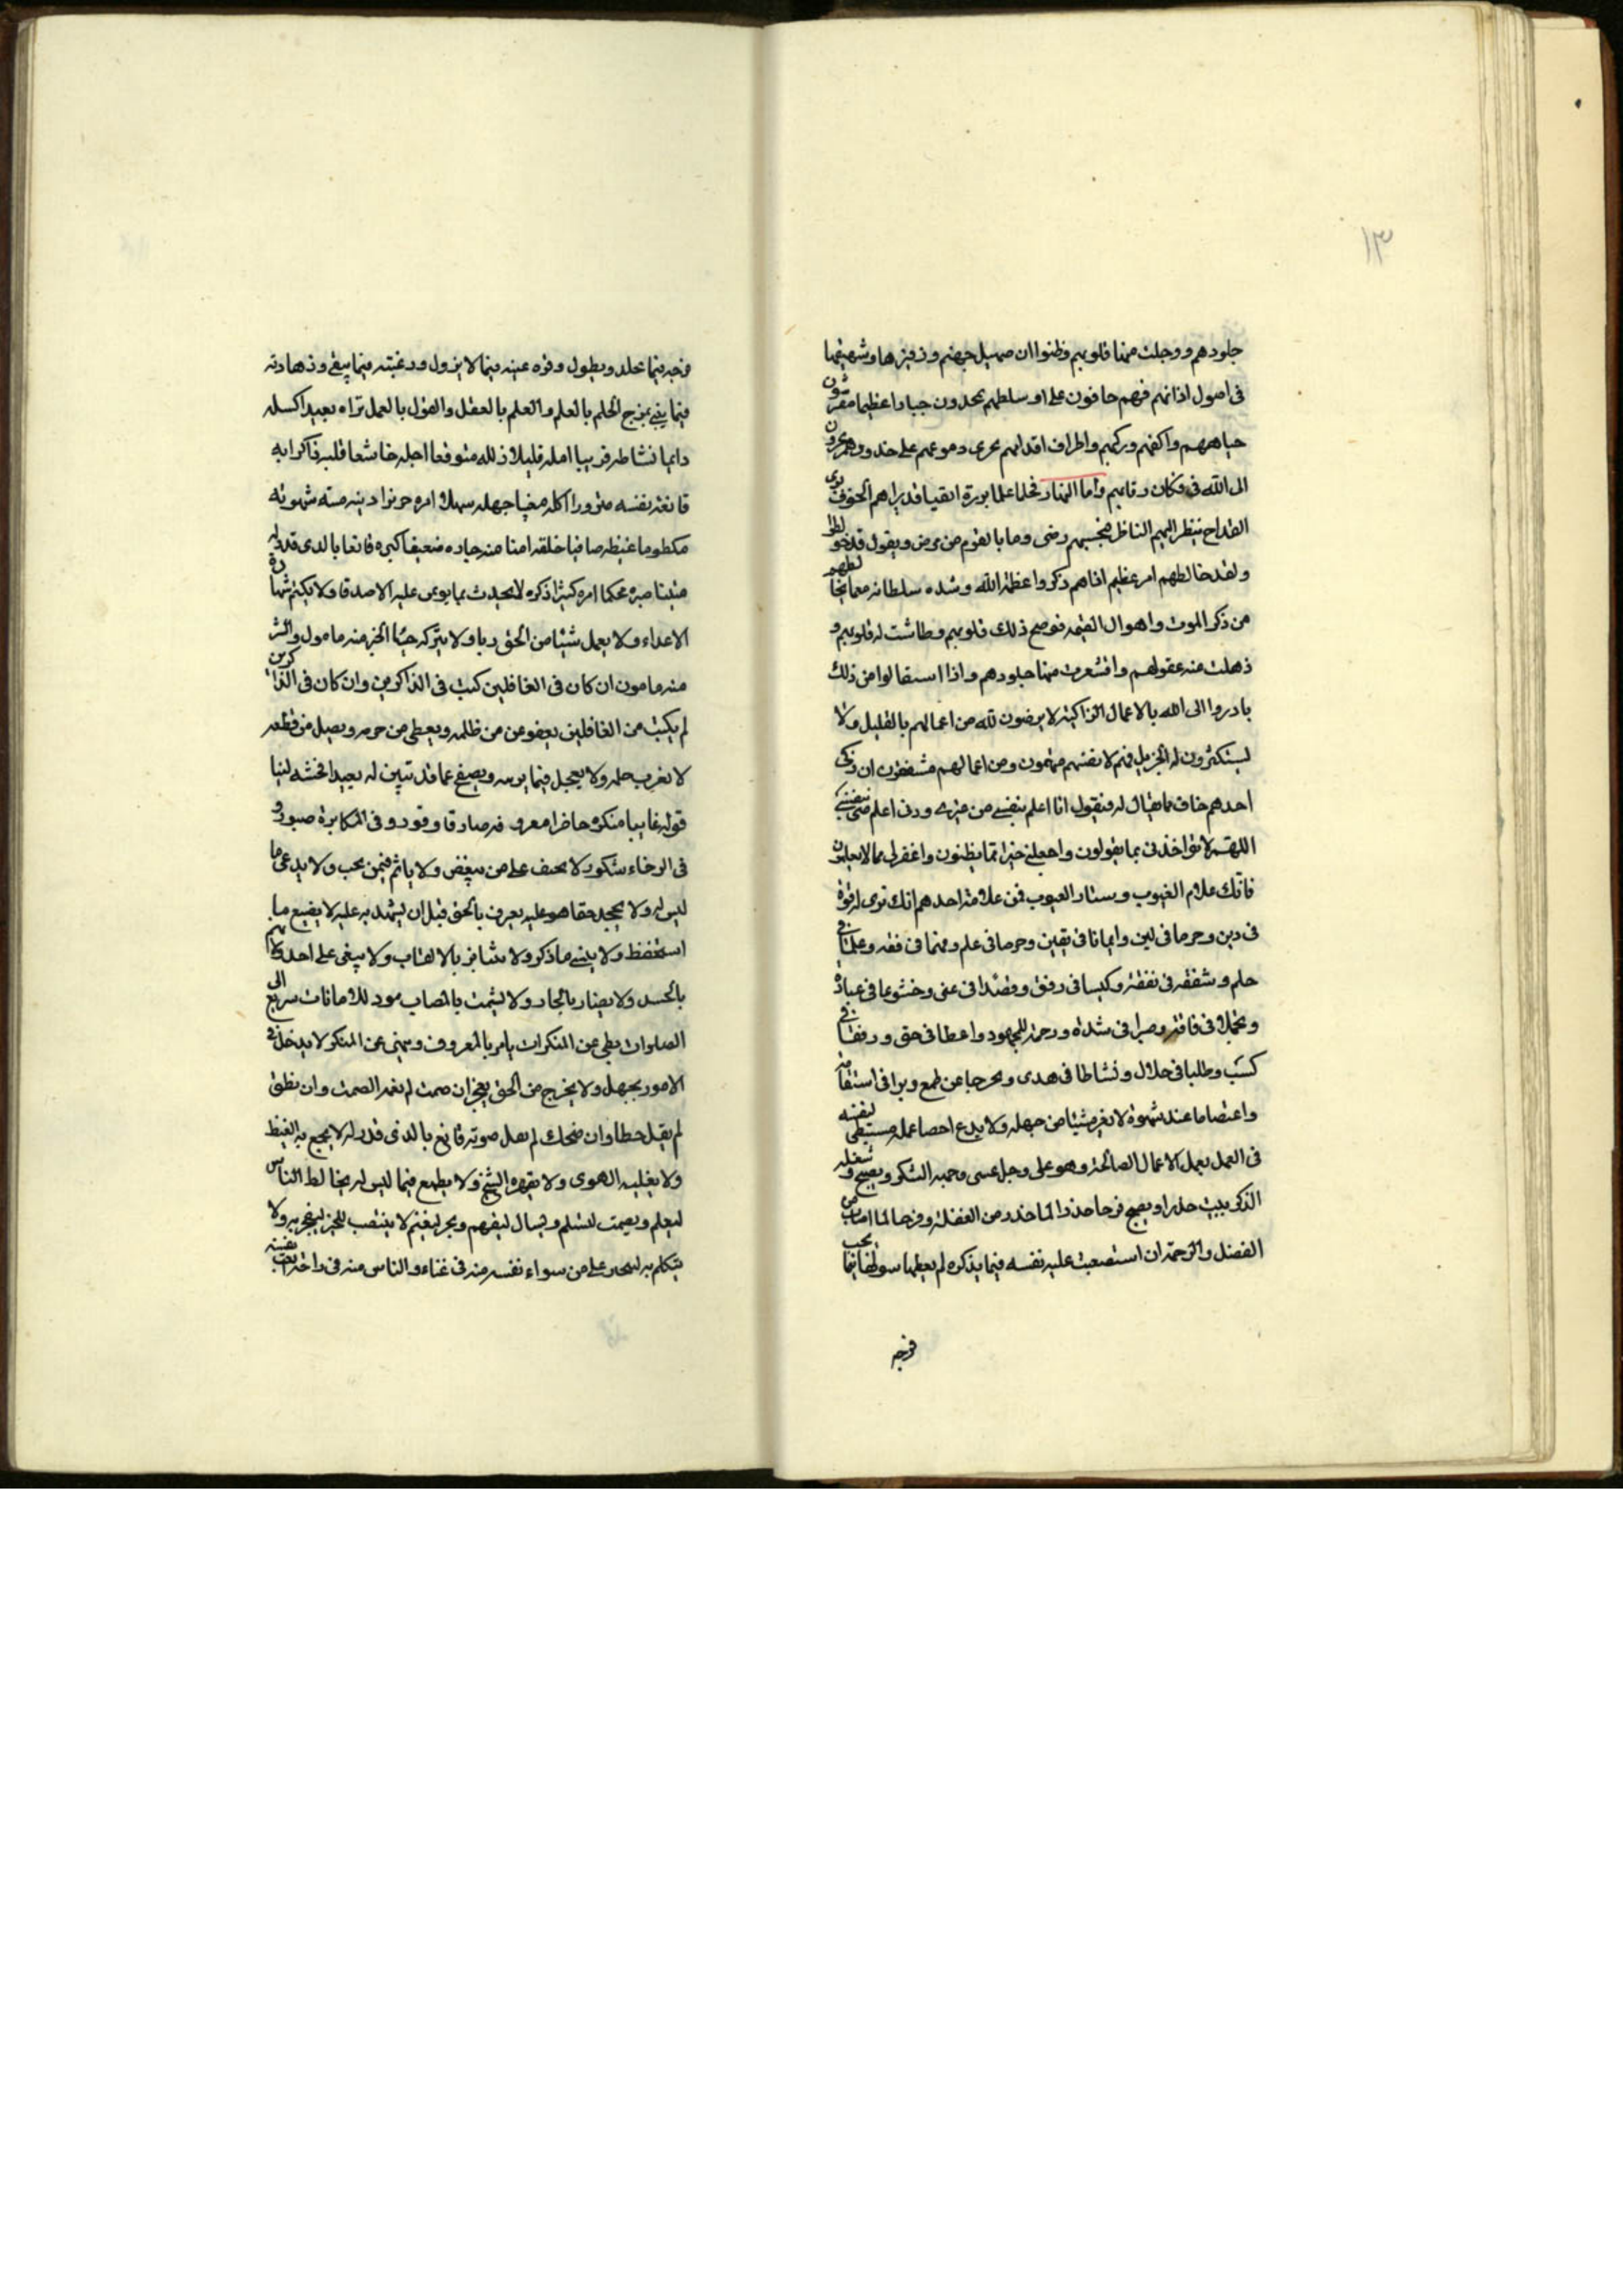 ١٣
جلودهم ووجلت منها قلوبهم وظنوا ان صهيل جهنم وزفيرها وشهيقها
فى اصول اذانهم فهم حافون على اوسطهم يمجدون جبارا عظيما مفترشون
جباههم واكفهم وركبهم واطراف اقدامهم يجرى دموعهم على خدودهم يجرون
الى الله فى فكاك رقابهم واما النهار فحلما علما بررة اتقيا قد براهم الخوف برى
القداح ينظر اليهم الناظر فيحسبهم مرضى وما بالقوم من مرض ويقول قد خولطوا
ولقد خالطهم امر عظيم اذا هم ذكروا عظمة الله وشده سلطانه مع ما يخالطهم
من ذكر الموت واهوال القيمه فوضح ذلك قلوبهم وطاشت له قلوبهم و
ذهلت منه عقولهم واقشعرت منها جلودهم واذا استقالوا من ذلك
بادروا الى الله بالاعمال الزاكية لا يرضون لله من اعمالهم بالقليل ولا
يستكثرون له الجزيل فهم لانفسهم متهمون ومن اعمالهم مشفقون ان زكى
احدهم خاف مما يقال له فيقول انا اعلم بنفسى من غيرى وربى اعلم منى بنفسى
اللهم لا تؤاخذنى بما يقولون واجعلنى خيرا مما يظنون واغفر لى مما لا يعلمون
فانك علام الغيوب وستار العيوب فمن علامة احدهم انك ترى له قوة
فى دين وحزما فى لين وايمانا فى يقين وحرصا فى علم وفهما فى فقه وعلما فى
حلم وشفقة فى نفقة وكيسا فى رفق وقصدا فى غنى وخشوعا فى عبادة
وتجملا فى فاقة وصبرا فى شدة ورحمة للمجهود واعطا فى حق ورفقا فى
كسب وطلبا فى حلال ونشاطا فى هدى وتحرجا عن طمع وبرا فى استقامة
واعتصاما عند شهوة لا يغره شيئا من جهله ولا يدع احصا عمله مستبطى لنفسه
فى العمل يعمل الاعمال الصالحة وهو على وجل عيسى وهمه الشكر ويصبح وشغله
الذكر يبيت حذرا ويصبح فرحا حذرا لما حذر من الغفلة وفرحا لما اصاب من
الفضل والرحمة ان استصعبت عليه نفسه فيما يذكره لم يعطها سولها فيما يحب
فرحه
فرحه فيما يخلد ويطول وقره عينه فيما لا يزول ورغبته فيما يبقى وزهادته
فيما يفنى يمزج الحلم بالعلم والعلم بالعقل والقول بالعمل تراه بعيدا كسله
دايما نشاطه قريبا امله قليلا زلله متوقعا اجله خاشعا قلبه ذاكرا ربه
قانعة نفسه منزورا اكله مغيبا جهله سهلا امره حريزا دينه ميتة شهوته
مكظوما غيظه صافيا خلقه امنا منه جاره ضعيفا كبره قانعا بالذى قدر له
متينا صبره محكما امره كثيرا ذكره لا يحدث بما يوتمن عليه الاصدقا ولا يكتم شهادة
الاعداء ولا يعمل شيئا من الحق ريا ولا يتركه حياء الخير منه مامول والشر
منه مامون ان كان فى الغافلين كتب فى الذاكرين وان كان فى الذاكرين
لم يكتب من الغافلين يعفو عن من ظلمه ويعطى من حرمه ويصل من قطعه
لا يعزب حلمه ولا يعجل فيما يريبه ويصفح عما قد تبين له بعيدا فحشه لينا
قوله غايبا منكره حاضرا معروفه صادقا وقورا وفى المكاره صبور و
فى الرخاء شكور لا يحيف على من يبغض ولا ياثم فيمن يحب ولا يدعى ما
ليس له ولا يجحد حقا هو عليه يعرف بالحق قبل ان يشهد به عليه لا يضيع ما
استحفظ ولا ينسى ما ذكر ولا يتنابز بالالقاب ولا يبغى على احد ولا يهم
بالحسد ولا يضار بالجار ولا يشمت بالمصاب مود للامانات سريع الى
الصلوات بطى عن المنكرات يامر بالمعروف وينهى عن المنكر لا يدخل فى
الامور بجهل ولا يخرج من الحق بعجز ان صمت لم يغمه الصمت وان نطق
لم يقل خطا وان ضحك لم يعل صوته قانع بالذى قدر له لا يجمح به الغيظ
ولا يغلبه الهوى ولا يقهره الشح ولا يطمع فيما ليس له يخالط الناس
ليعلم ويصمت ليسلم ويسال ليفهم ويتجر ليغنم لا ينصب للخير ليفخر به ولا
يتكلم به ليتجبر على من سواه نفسه منه فى عناء والناس منه فى راحة اتعب نفسه